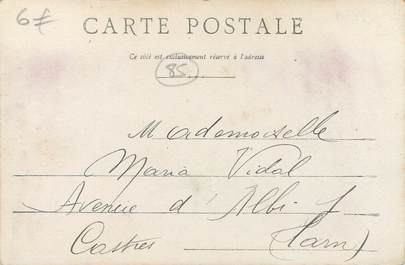 6f
CARTE POSTALE
Ce côté est exclusivement réservé à l'adresse
85
Mademoiselle
Maria Vidal
Avenue d'Albi
Castres (Tarn)